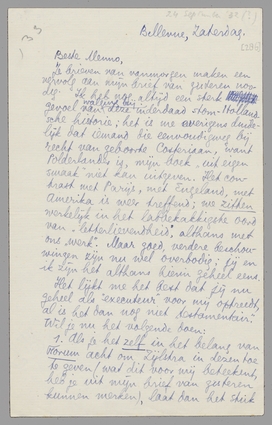 Bellevue, Zaterdag.
Beste Menno,
Je brieven van vanmorgen maken een
vervolg aan mijn brief van gisteren noo-
dig. Ik heb nog altijd een sterk
gevoel van walging bij deze inderdaad stom-Holland-
sche historie; het is me overigens duide-
lijk dat iemand die eenvoudigweg bij
recht van geboorte Costeriaan, want
Polderlander is, mijn boek uit eigen
smaak niet kan uitgeven. Het con-
trast met Parijs, met Engeland, met
Amerika is weer treffend; we zitten
werkelijk in het labbekakkigste oord
van "letterlievendheid", althans met
"ons werk". Maar goed, verdere beschou-
wingen zijn nu wel overbodig; jij en
ik zijn het althans hierin geheel eens.
Het lijkt me het best dat jij nu
geheel als "executeur" voor mij optreedt,
al is het dan nog niet "testamentair".
Wil je nu het volgende doen:
1. Als je het zelf in het belang van
Forum acht om Zijlstra in lezen toe
te geven (wat dit voor mij beteekent,
heb je uit mijn brief van gisteren
kunnen merken), laat dan het stuk